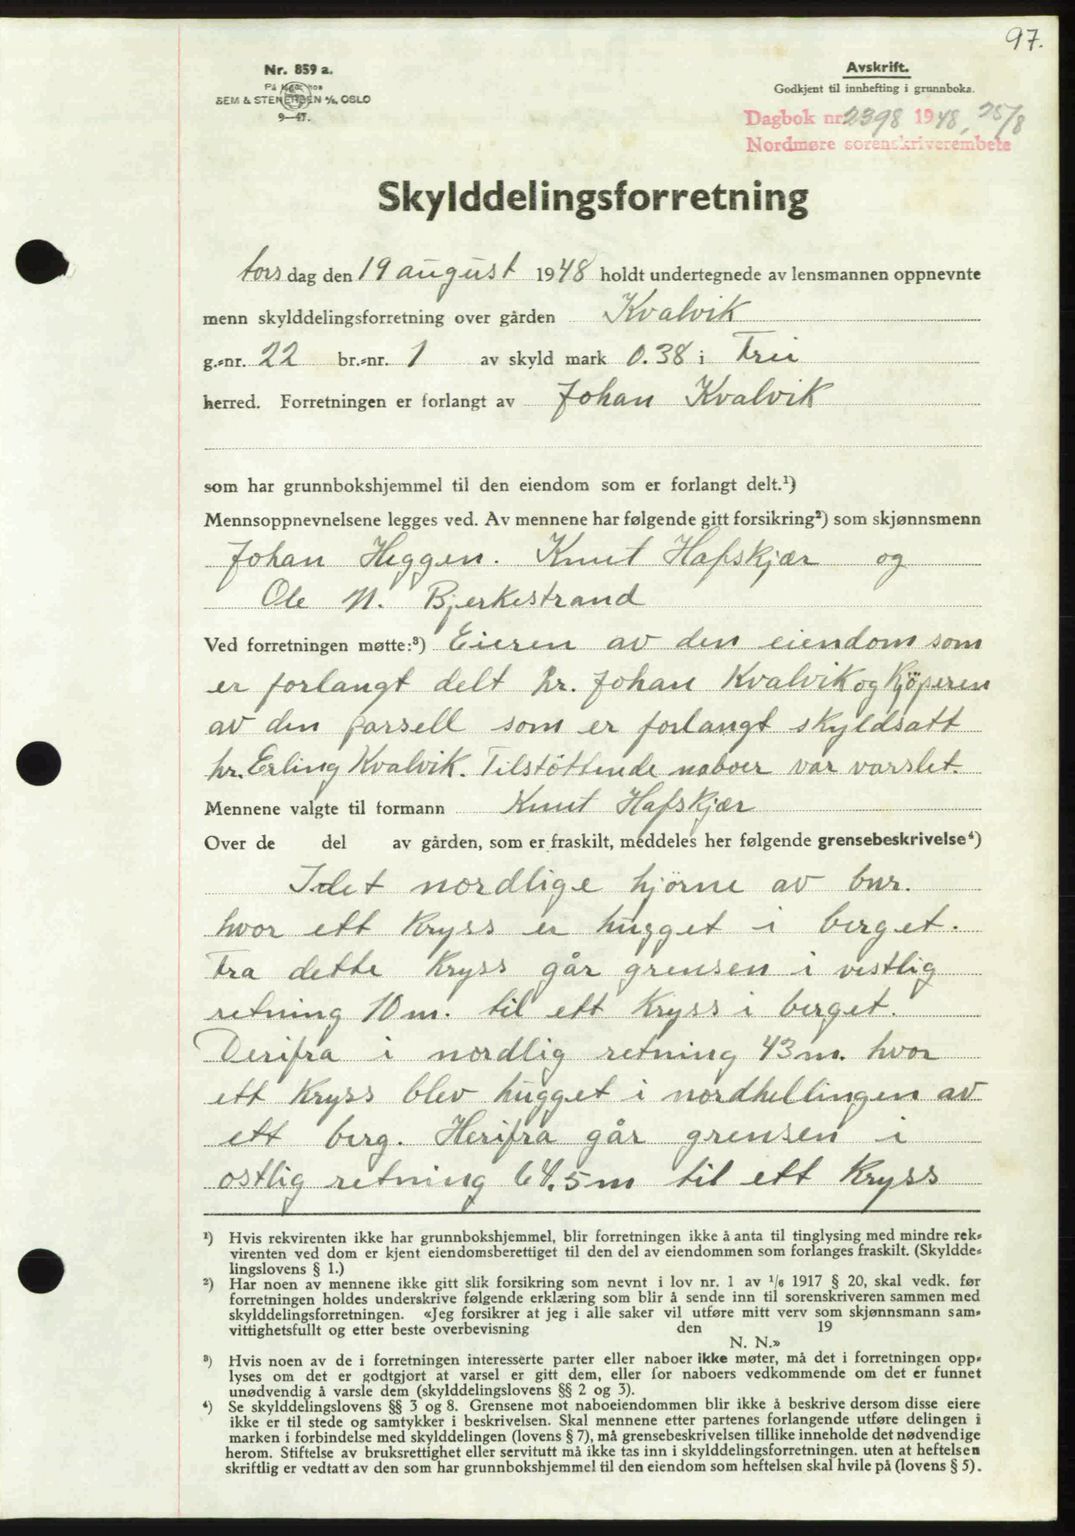 97.
Nr. 859 a.
På lager hos
SEM & STENERSEN A/S, OSLO
9—47.
Avskrift.
Godkjent til innhefting i grunnboka.
Dagbok nr. 2398 1948, 25/8
Nordmøre sorenskriverembete
Skylddelingsforretning
tors dag den 19 august 1948 holdt undertegnede av lensmannen oppnevnte
menn skylddelingsforretning over gården Kvalvik
g.-nr. 22 br.-nr. 1 av skyld mark 0.38 i Frei
herred. Forretningen er forlangt av Johan Kvalvik
som har grunnbokshjemmel til den eiendom som er forlangt delt.¹)
Mennsoppnevnelsene legges ved. Av mennene har følgende gitt forsikring²) som skjønnsmenn
Johan Heggen. Knut Hafskjær og
Ole N. Bjerkestrand
Ved forretningen møtte:³) Eieren av den eiendom som
er forlangt delt hr. Johan Kvalvik og Kjöperen
av den parsell som er forlangt skyldsatt
hr. Erling Kvalvik. Tilstöttende naboer var varslet.
Mennene valgte til formann Knut Hafskjær
Over de del av gården, som er fraskilt, meddeles her følgende grensebeskrivelse⁴)
I det nordlige hjörne av bnr.
hvor ett Kryss er hugget i berget.
Fra dette Kryss går grensen i vestlig
retning 10 m. til ett Kryss i berget.
Derifra i nordlig retning 43 m. hvor
ett Kryss blev hugget i nordhellingen av
ett berg. Herifra går grensen i
ostlig retning 64.5 m til ett Kryss
¹) Hvis rekvirenten ikke har grunnbokshjemmel, blir forretningen ikke å anta til tinglysing med mindre rek-
virenten ved dom er kjent eiendomsberettiget til den del av eiendommen som forlanges fraskilt. (Skyldde-
lingslovens § 1.)
²) Har noen av mennene ikke gitt slik forsikring som nevnt i lov nr. 1 av 1/6 1917 § 20, skal vedk. før
forretningen holdes underskrive følgende erklæring som blir å sende inn til sorenskriveren sammen med
skylddelingsforretningen. «Jeg forsikrer at jeg i alle saker vil utføre mitt verv som skjønnsmann sam-
vittighetsfullt og etter beste overbevisning den 19
N. N.»
³) Hvis noen av de i forretningen interesserte parter eller naboer ikke møter, må det i forretningen opp-
lyses om det er godtgjort at varsel er gitt dem, eller for naboers vedkommende om det er funnet
unødvendig å varsle dem (skylddelingslovens §§ 2 og 3).
⁴) Se skylddelingslovens §§ 3 og 8. Grensene mot naboeiendommen blir ikke å beskrive dersom disse eiere
ikke er til stede og samtykker i beskrivelsen. Skal mennene etter partenes forlangende utføre delingen i
marken i forbindelse med skylddelingen (lovens § 7), må grensebeskrivelsen tillike inneholde det nødvendige
herom. Stiftelse av bruksrettighet eller servitutt må ikke tas inn i skylddelingsforretningen. uten at heftelsen
skriftlig er vedtatt av den som har grunnbokshjemmel til den eiendom som heftelsen skal hvile på (lovens § 5).